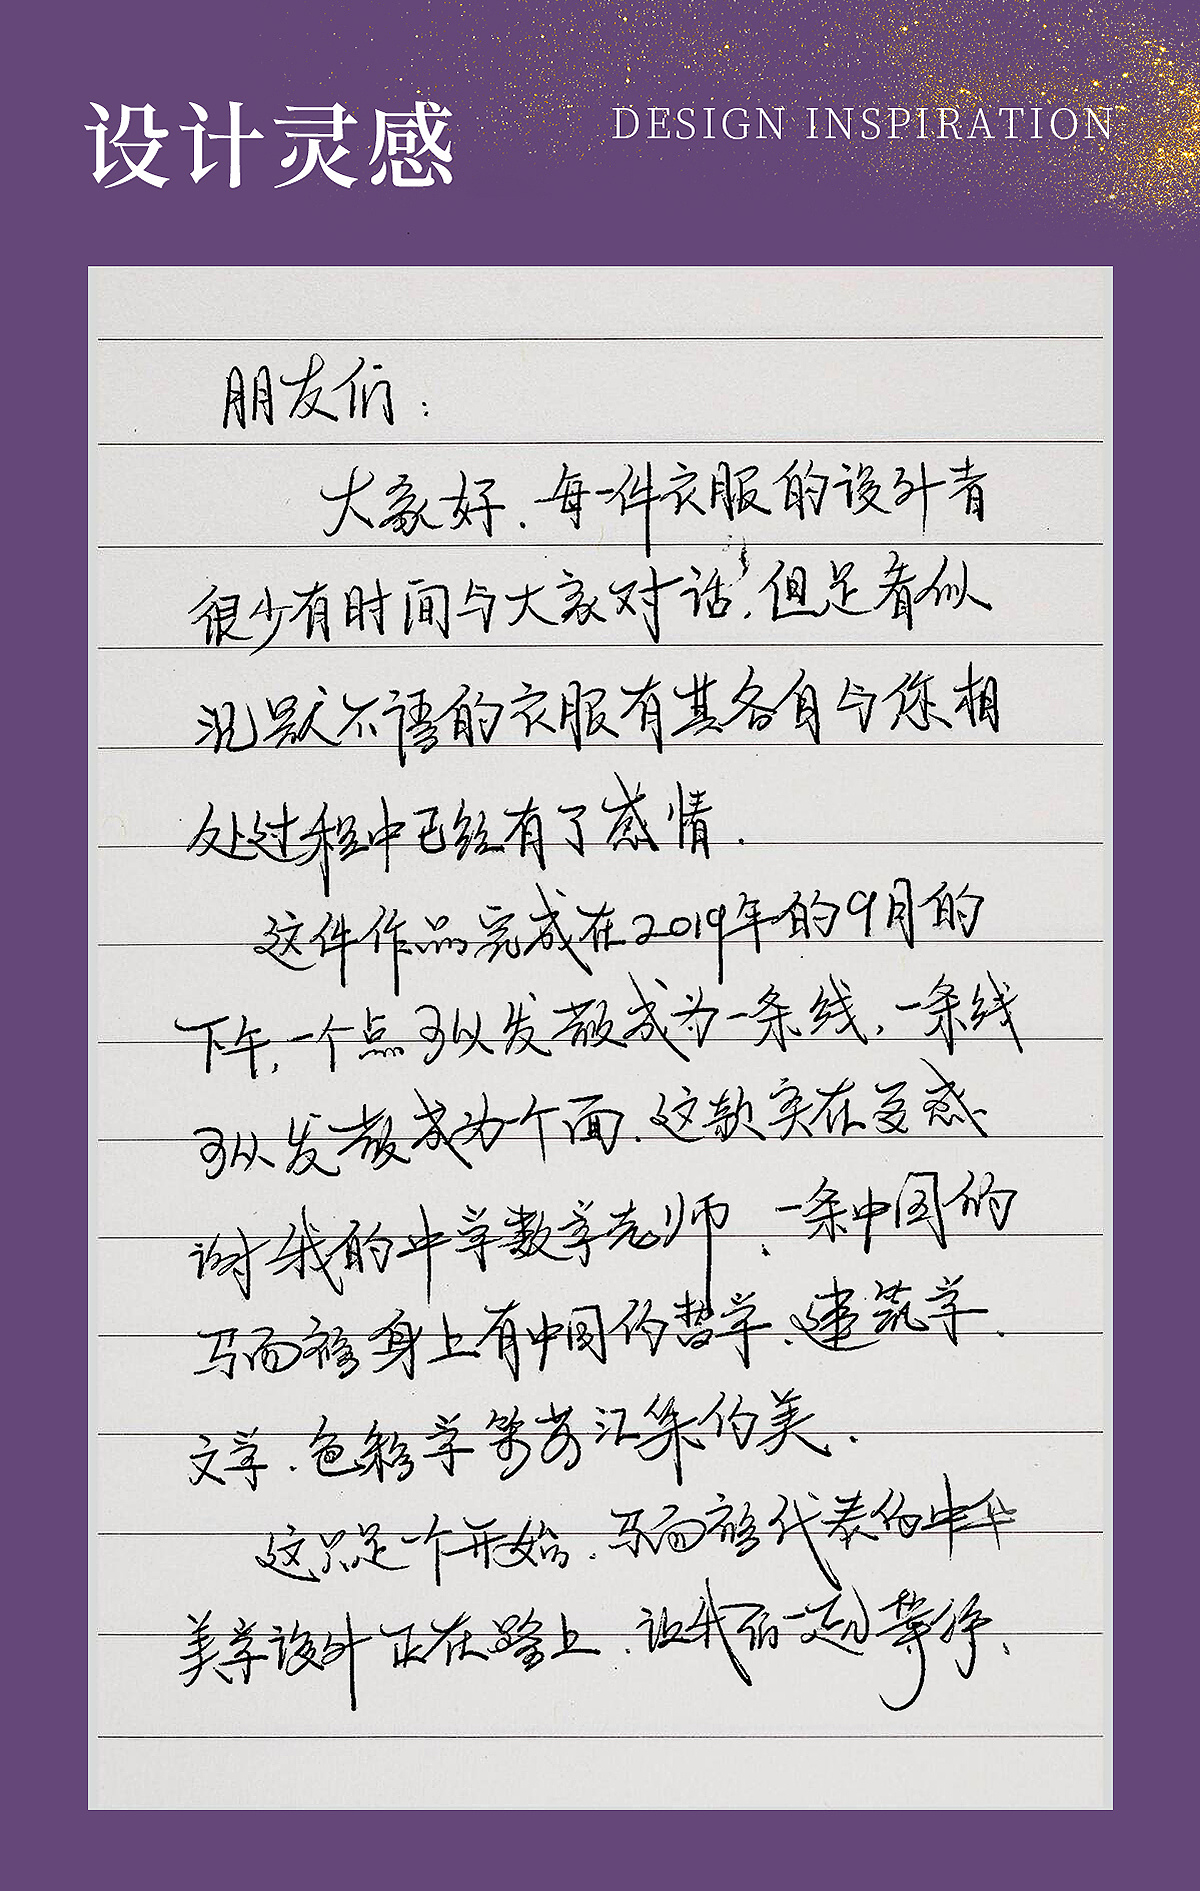 设计灵感
DESIGN INSPIRATION
朋友们：
大家好．每一件衣服的设计者
很少有时间与大家对话，但是看似
沉默不语的衣服有其各自与您相
处过程中已经有了感情．
这件作品完成在2019年的9月的
下午，一个点可以发散成为一条线，一条线
可以发散成为个面．这款实在要感
谢我的中学数学老师、一条中国的
马面裙身上有中国的哲学、建筑学、
文学、色彩学等劳汇集的美．
这只是一个开始．马面裙代表的中华
美学设计正在路上．让我们一边等待、